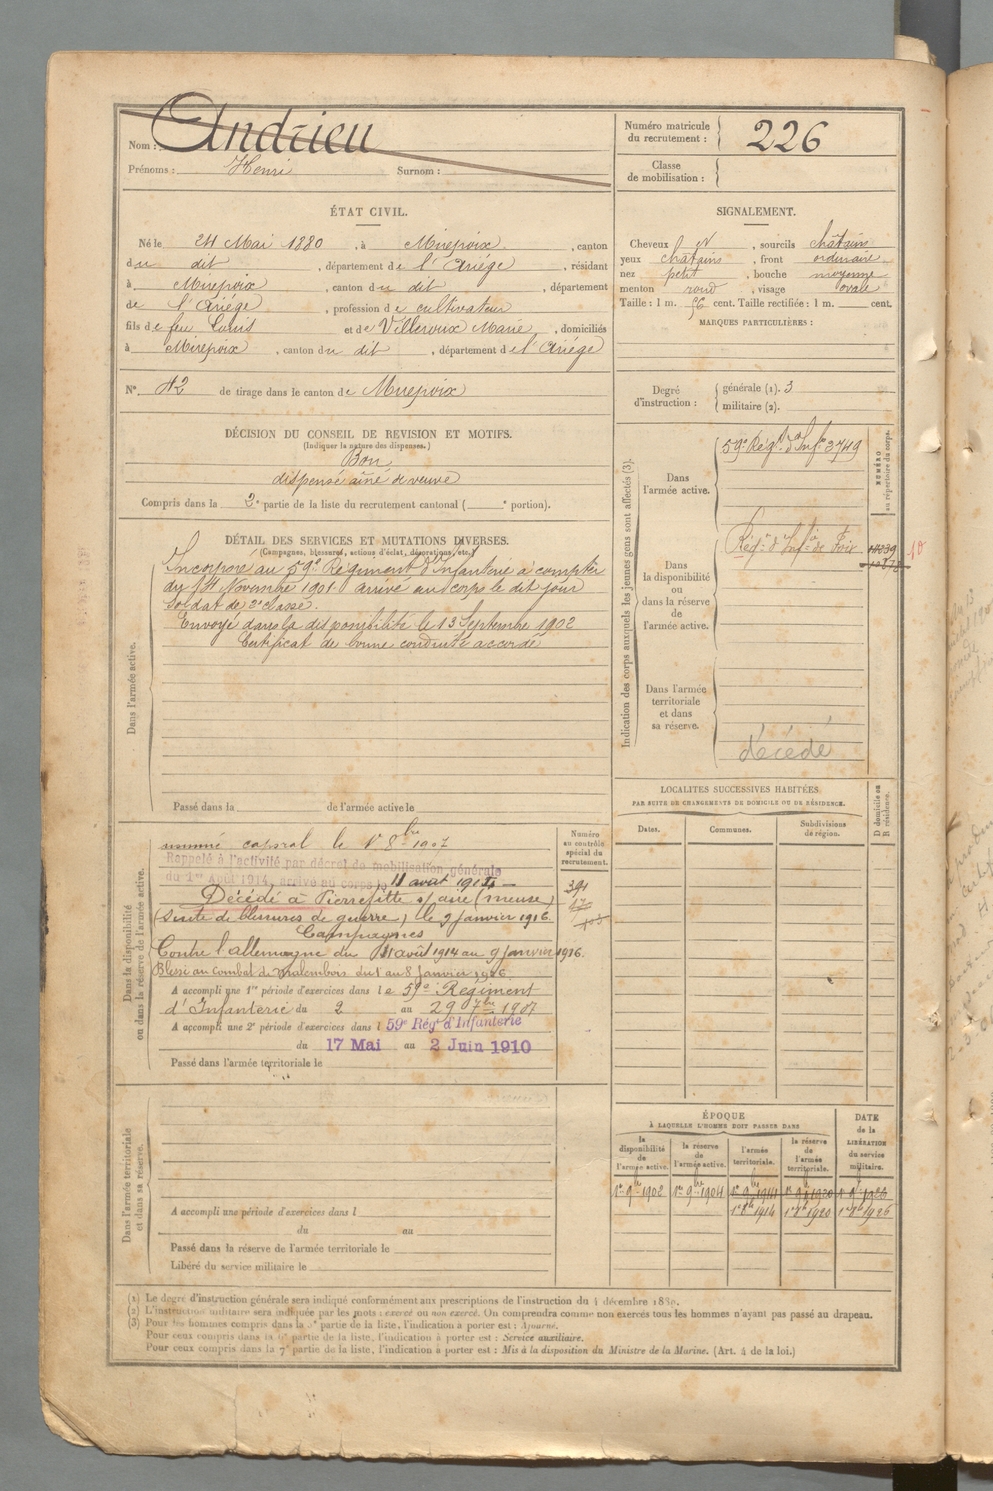 Nom : Andrieu
Prénoms : Henri Surnom :
Numéro matricule du recrutement : 226
Classe de mobilisation :
ÉTAT CIVIL.
Né le 24 Mai 1880, à Mirepoix, canton
du dit, département de l'Ariége, résidant
à Mirepoix, canton du dit, département
de l'Ariége, profession de cultivateur
fils de feu Louis et de Villeroux Marie, domiciliés
à Mirepoix, canton du dit, département de l'Ariége
N° 42 de tirage dans le canton de Mirepoix
SIGNALEMENT.
Cheveux N, sourcils châtains
yeux châtains, front ordinaire
nez petit, bouche moyenne
menton rond, visage ovale
Taille : 1 m. 56 cent. Taille rectifiée : 1 m. cent.
MARQUES PARTICULIÈRES :
Degré d'instruction : générale (1). 3
militaire (2).
DÉCISION DU CONSEIL DE REVISION ET MOTIFS.
(Indiquer la nature des dispenses.)
Bon
dispensé aîné de veuve
Compris dans la 2e partie de la liste du recrutement cantonal ( e portion).
DÉTAIL DES SERVICES ET MUTATIONS DIVERSES.
(Campagnes, blessures, actions d'éclat, décorations, etc.)
Dans l'armée active.
Incorporé au 59e Régiment d'Infanterie à compter
du 14 Novembre 1901. arrivé au corps le dit jour
Soldat de 2e classe.
Envoyé dans la disponibilité le 13 Septembre 1902
Certificat de bonne conduite accordé
Passé dans la de l'armée active le
Indication des corps auxquels les jeunes gens sont affectés (3).
NUMÉRO au répertoire du corps.
Dans l'armée active.
59e Régt d'Infie 3749
Dans la disponibilité ou dans la réserve de l'armée active.
Régt d'Infie de Foix
Dans l'armée territoriale et dans sa réserve.
décédé
LOCALITÉS SUCCESSIVES HABITÉES
PAR SUITE DE CHANGEMENTS DE DOMICILE OU DE RÉSIDENCE.
Dates. Communes. Subdivisions de région. D domicile ou R résidence.
Dans la disponibilité ou dans la réserve de l'armée active.
Numéro au contrôle spécial du recrutement.
nommé caporal le 1r 8bre 1907
Rappelé à l'activité par décret de mobilisation générale
du 1er Août 1914, arrivé au corps le 11 août 1914
391
Décédé à Pierrefitte s/aire (meuse)
(Suite de blessures de guerre) le 9 janvier 1916.
Campagnes
Contre l'allemagne du 11 août 1914 au 9 janvier 1916.
Blessé au combat de malembois du 1 au 8 janvier 1916
A accompli une 1re période d'exercices dans le 59e Régiment
d'Infanterie du 2 au 29 7bre 1907
A accompli une 2e période d'exercices dans l 59e Rég' d'Infanterie
du 17 Mai au 2 Juin 1910
Passé dans l'armée territoriale le
Dans l'armée territoriale et dans sa réserve.
A accompli une période d'exercices dans l
du au
Passé dans la réserve de l'armée territoriale le
Libéré du service militaire le
ÉPOQUE
À LAQUELLE L'HOMME DOIT PASSER DANS
DATE de la LIBÉRATION du service militaire.
la disponibilité de l'armée active. la réserve de l'armée active. l'armée territoriale. la réserve de l'armée territoriale.
1r 9bre 1902 1r 9bre 1904 1r 9bre 1914 1r 9bre 1920 1r 9bre 1926
1r 8bre 1914 1r 8bre 1920 1r 8bre 1926
(1) Le degré d'instruction générale sera indiqué conformément aux prescriptions de l'instruction du 4 décembre 1889.
(2) L'instruction militaire sera indiquée par les mots : exercé ou non exercé. On comprendra comme non exercés tous les hommes n'ayant pas passé au drapeau.
(3) Pour les hommes compris dans la partie de la liste, l'indication à porter est : Ajourné.
Pour ceux compris dans la partie de la liste, l'indication à porter est : Service auxiliaire.
Pour ceux compris dans la 7e partie de la liste, l'indication à porter est : Mis à la disposition du Ministre de la Marine. (Art. 4 de la loi.)